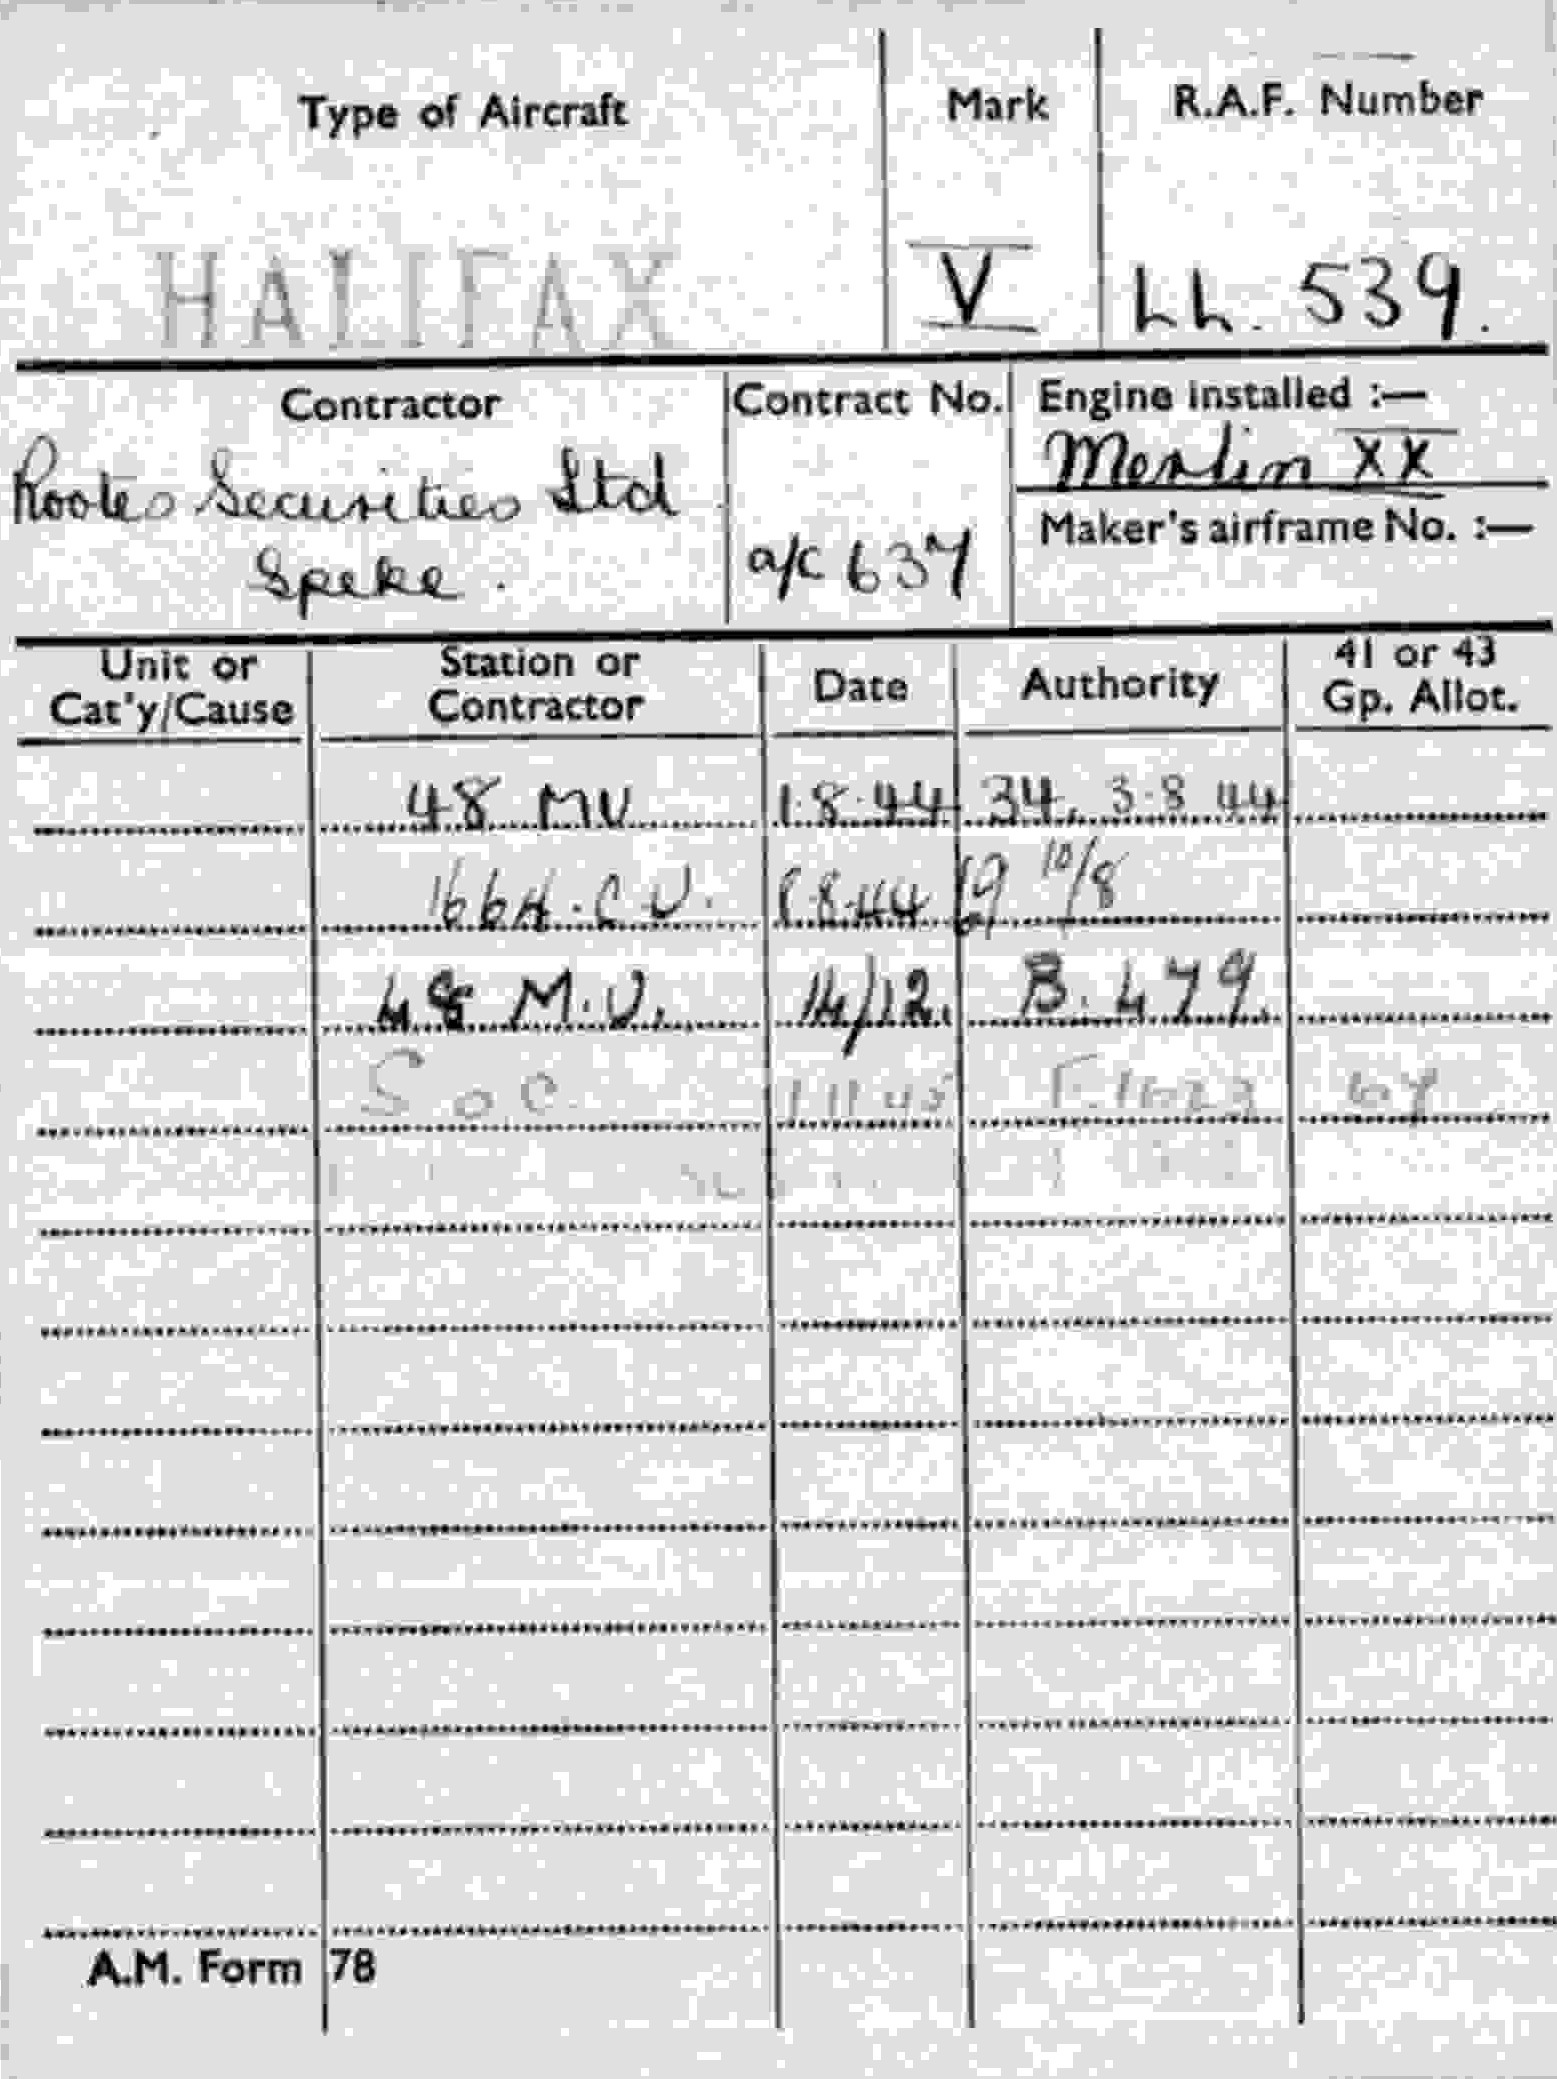 Type of Aircraft Mark R.A.F. Number
HALIFAX V LL. 539.
Contractor Contract No. Engine installed :—
Rootes Securities Ltd Merlin XX
Speke. a/c 637 Maker's airframe No. :—
Unit or Cat'y/Cause Station or Contractor Date Authority 41 or 43 Gp. Allot.
48 MU 1.8.44 34. 3.8.44
H.C.U. 8.8.44 69 10/8
48 M.U. 14/12. B. 479.
S.o.C. 1 11 45
A.M. Form 78